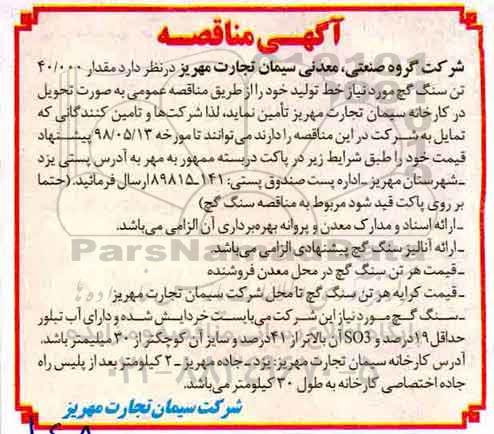 آگهـی مناقصـه
شرکت گروه صنعتی، معدنی سیمان تجارت مهریز درنظر دارد مقدار ۴۰/۰۰۰
تن سنگ گچ مورد نیاز خط تولید خود را از طریق مناقصه عمومی به صورت تحویل
در کارخانه سیمان تجارت مهریز تأمین نماید، لذا شرکت‌ها و تامین کنندگانی که
تمایل به شرکت در این مناقصه را دارند می‌توانند تا مورخه ۹۸/۰۵/۱۳ پیشنهاد
قیمت خود را طبق شرایط زیر در پاکت دربسته ممهور به مهر به آدرس پستی یزد
ـ شهرستان مهریز ـ اداره پست صندوق پستی: ۱۴۱ـ۸۹۸۱۵ ارسال فرمائید. (حتما
بر روی پاکت قید شود مربوط به مناقصه سنگ گچ)
ـ ارائه اسناد و مدارک معدن و پروانه بهره‌برداری آن الزامی می‌باشد.
ـ ارائه آنالیز سنگ گچ پیشنهادی الزامی می‌باشد.
ـ قیمت هر تن سنگ گچ در محل معدن فروشنده
ـ قیمت کرایه هر تن سنگ گچ تا محل شرکت سیمان تجارت مهریز
ـ سنگ گچ مورد نیاز این شرکت می‌بایست خردایش شده و دارای آب تبلور
حداقل ۱۹درصد و SO3 آن بالاتر از ۴۱درصد و سایز آن کوچکتر از ۳۰ میلیمتر باشد.
آدرس کارخانه سیمان تجارت مهریز: یزد ـ جاده مهریز ـ ۲ کیلومتر بعد از پلیس راه
جاده اختصاصی کارخانه به طول ۳۰ کیلومتر می‌باشد.
شرکت سیمان تجارت مهریز
ParsNamadData